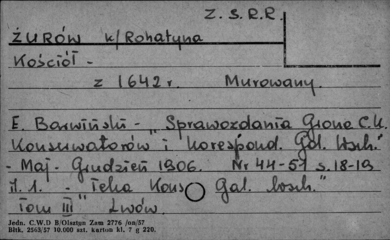 Z. S. R. R.
ŻURÓW k/Rohatyna
Kościół -
z 1642 r. Murowany.
E. Barwiński - "Sprawozdania Grona C.k.
Konserwatorów i korespond. Gal. wsch."
- Maj - Grudzień 1906. Nr 44-51 s. 18-19
il. 1. - Teka Kons Gal. wsch."
Tom III" Lwów.
Jedn. C.W.D B/Olsztyn Zam 2776 /on/57
Bltk. 2563/57 10.000 szt. karton kl. 7 g 220.